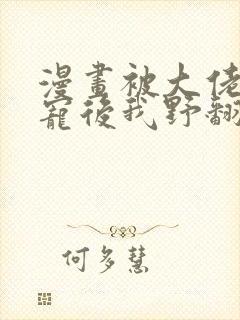 漫畫被大佬
寵後我野翻
何多慧